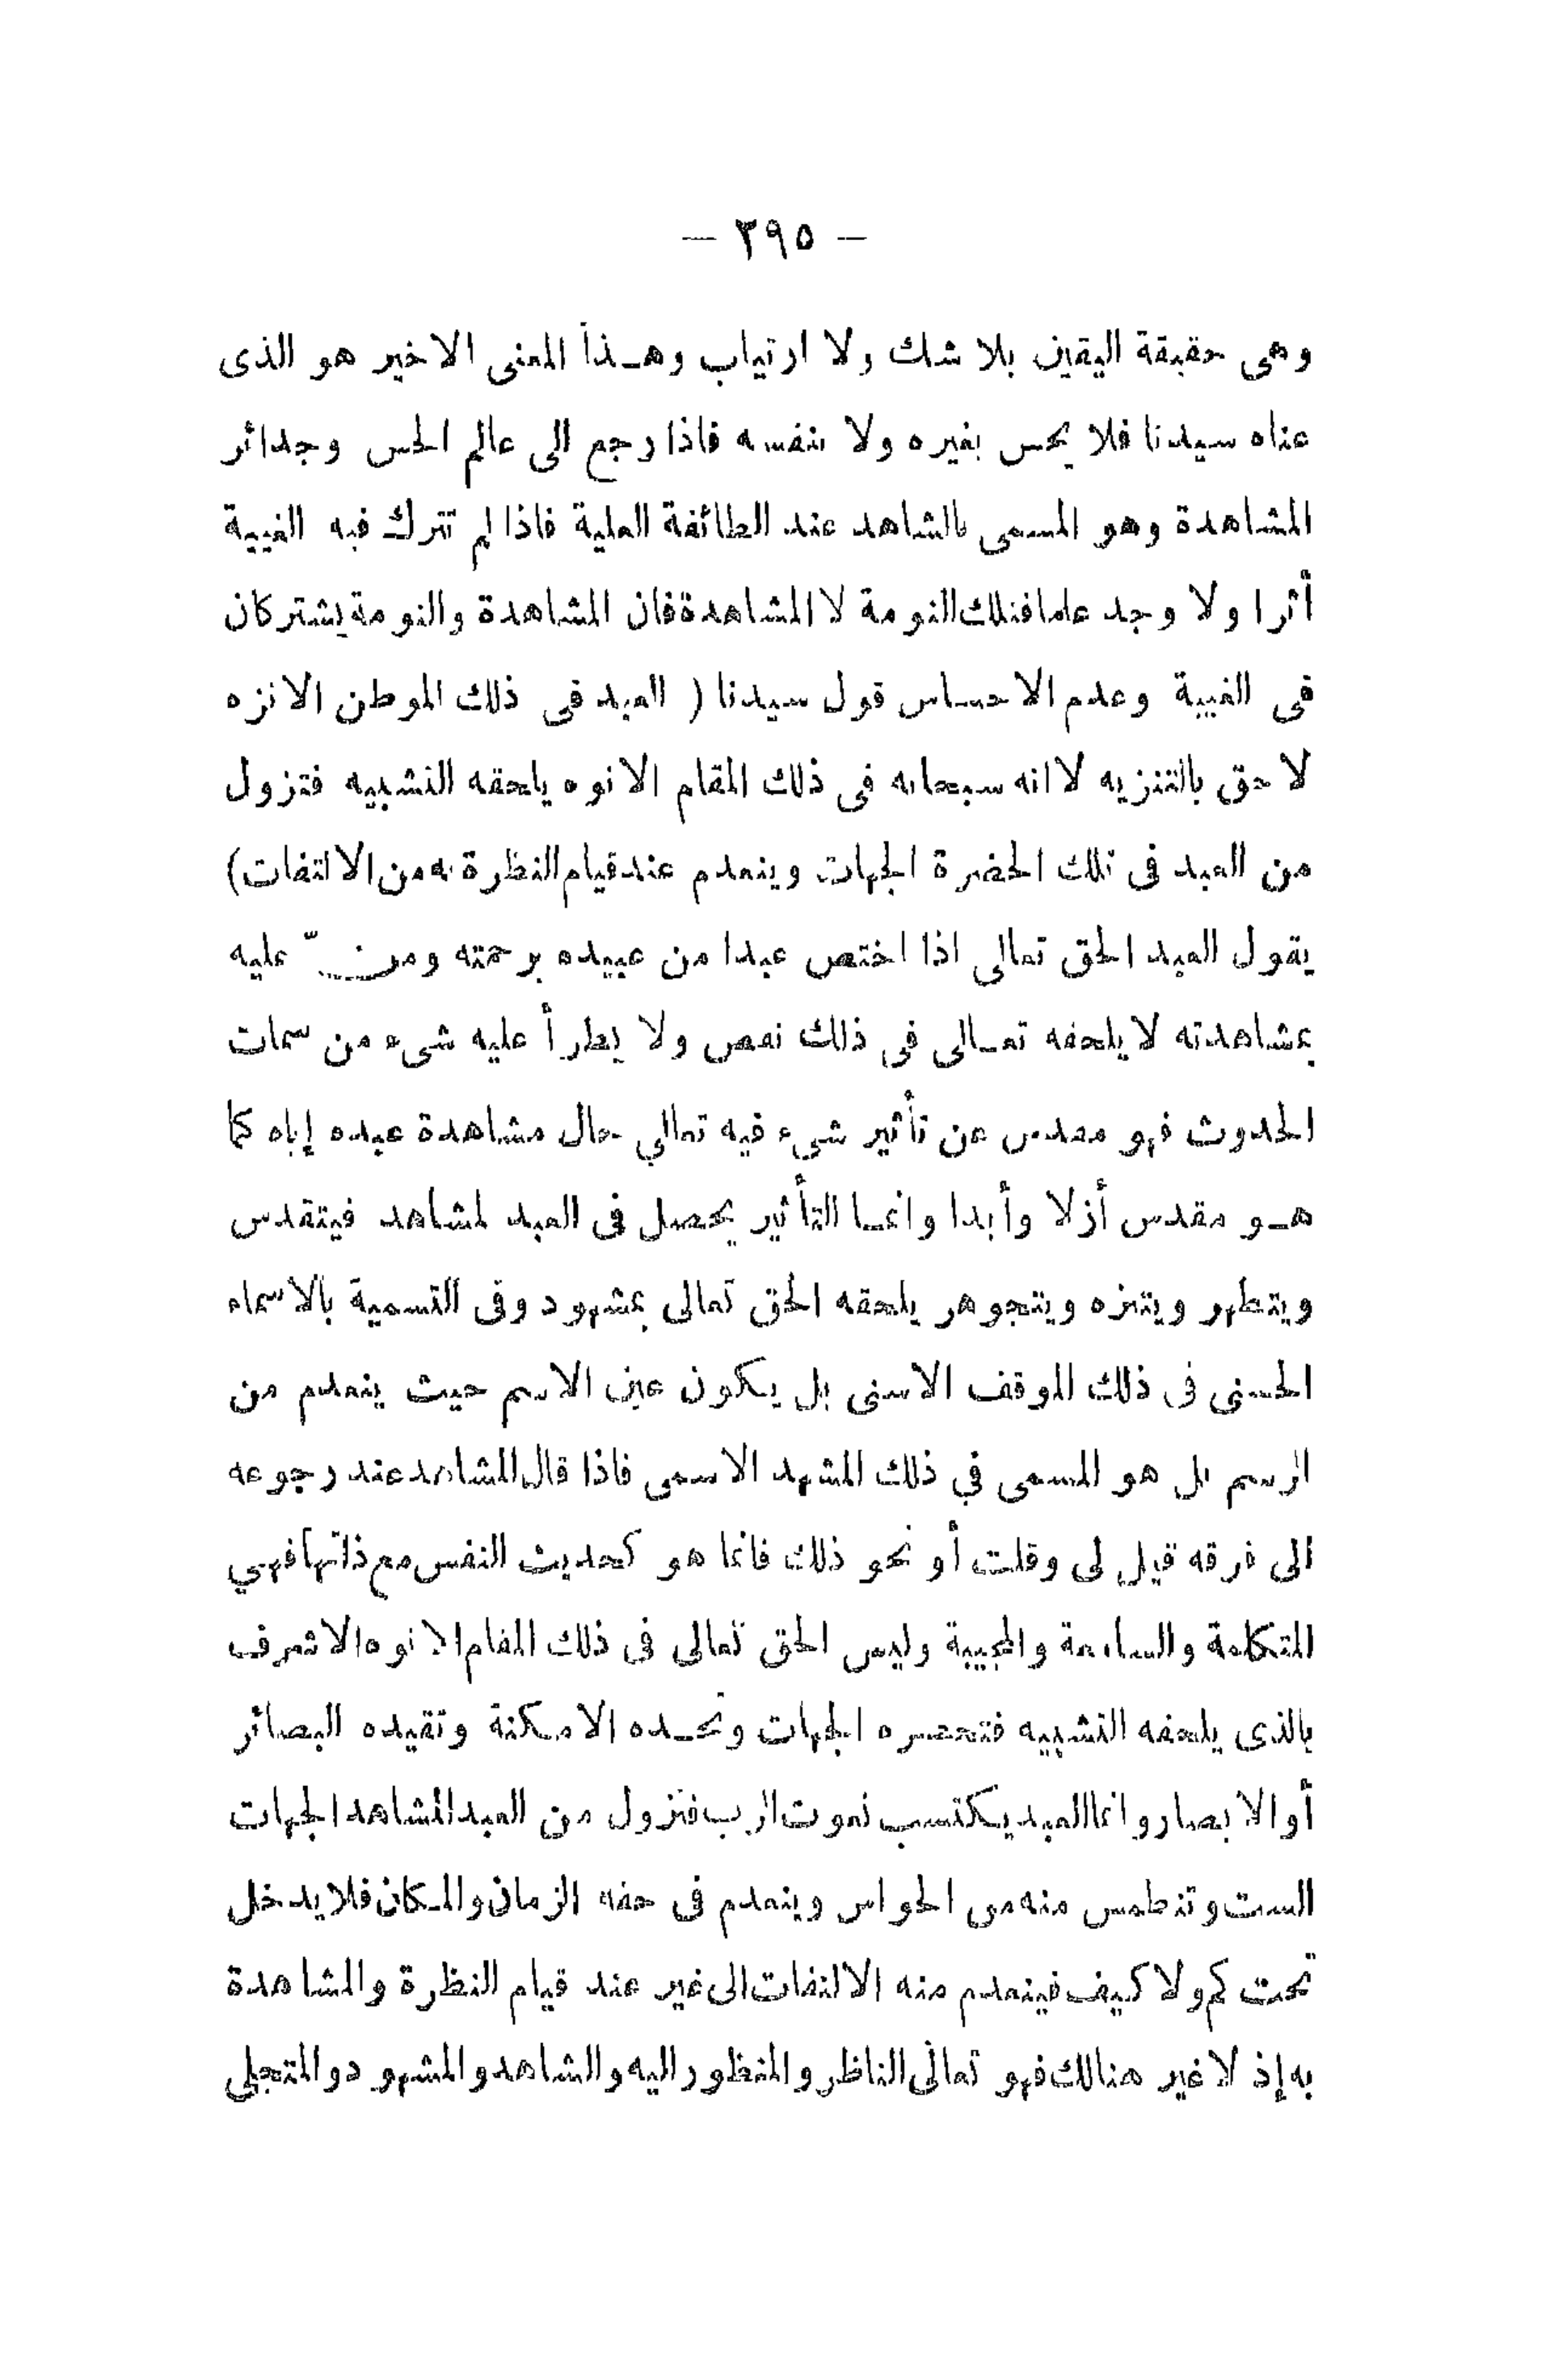 — ٣٩٥ —
وهى حقيقة اليقين بلا شك ولا ارتياب وهـذا المعنى الاخير هو الذى
عناه سيدنا فلا يحس بغيره ولا بنفسه فاذا رجع الى عالم الحس وجد اثر
المشاهدة وهو المسمى بالشاهد عند الطائفة العلية فاذا لم تترك فيه الغيبة
أثرا ولا وجد علما فتلك النومة لا المشاهدة فان المشاهدة والنومة يشتركان
فى الغيبة وعدم الاحساس قول سيدنا ( العبد فى ذلك الموطن الانزه
لاحق بالتنزيه لا انه سبحانه فى ذلك المقام الانوه يلحقه التشبيه فتزول
من العبد فى تلك الحضرة الجهات وينعدم عند قيام النظرة به من الالتفات)
يقول العبد الحق تعالى اذا اختص عبدا من عبيده برحمته ومنّ عليه
بمشاهدته لا يلحقه تعـالى فى ذلك نقص ولا يطرأ عليه شىء من سمات
الحدوث فهو مقدس عن تأثير شىء فيه تعالي حال مشاهدة عبده إياه كما
هـو مقدس أزلا وأبدا وانمـا التأثير يحصل فى العبد لمشاهد فيتقدس
ويتطهر ويتنزه ويتجوهر يلحقه الحق تعالى بمشهود وفى التسمية بالاسماء
الحسنى فى ذلك الموقف الاسنى بل يكون عين الاسم حيث ينعدم من
الرسم بل هو المسمى في ذلك المشهد الاسمى فاذا قال المشاهد عند رجوعه
الى فرقه قيل لى وقلت أو نحو ذلك فانما هو كحديث النفس مع ذاتها فهي
المتكلمة والسامعة والمجيبة وليس الحق تعالى فى ذلك المقام الانوه الاشرف
بالذى يلحقه التشبيه فتحصره الجهات وتحـده الامكنة وتقيده البصائر
أو الابصار وانما العبد يكتسب نعوت الرب فتزول من العبد المشاهد الجهات
الست وتنطمس منه مى الحواس وينعدم فى حقه الزمان والمـكان فلا يدخل
تحت كم ولا كيف فينعدم منه الالتفات الى غير عند قيام النظرة والمشاهدة
به إذ لا غير هنالك فهو تعالى الناظر والمنظور اليه والشاهد والمشهود والمتجلي